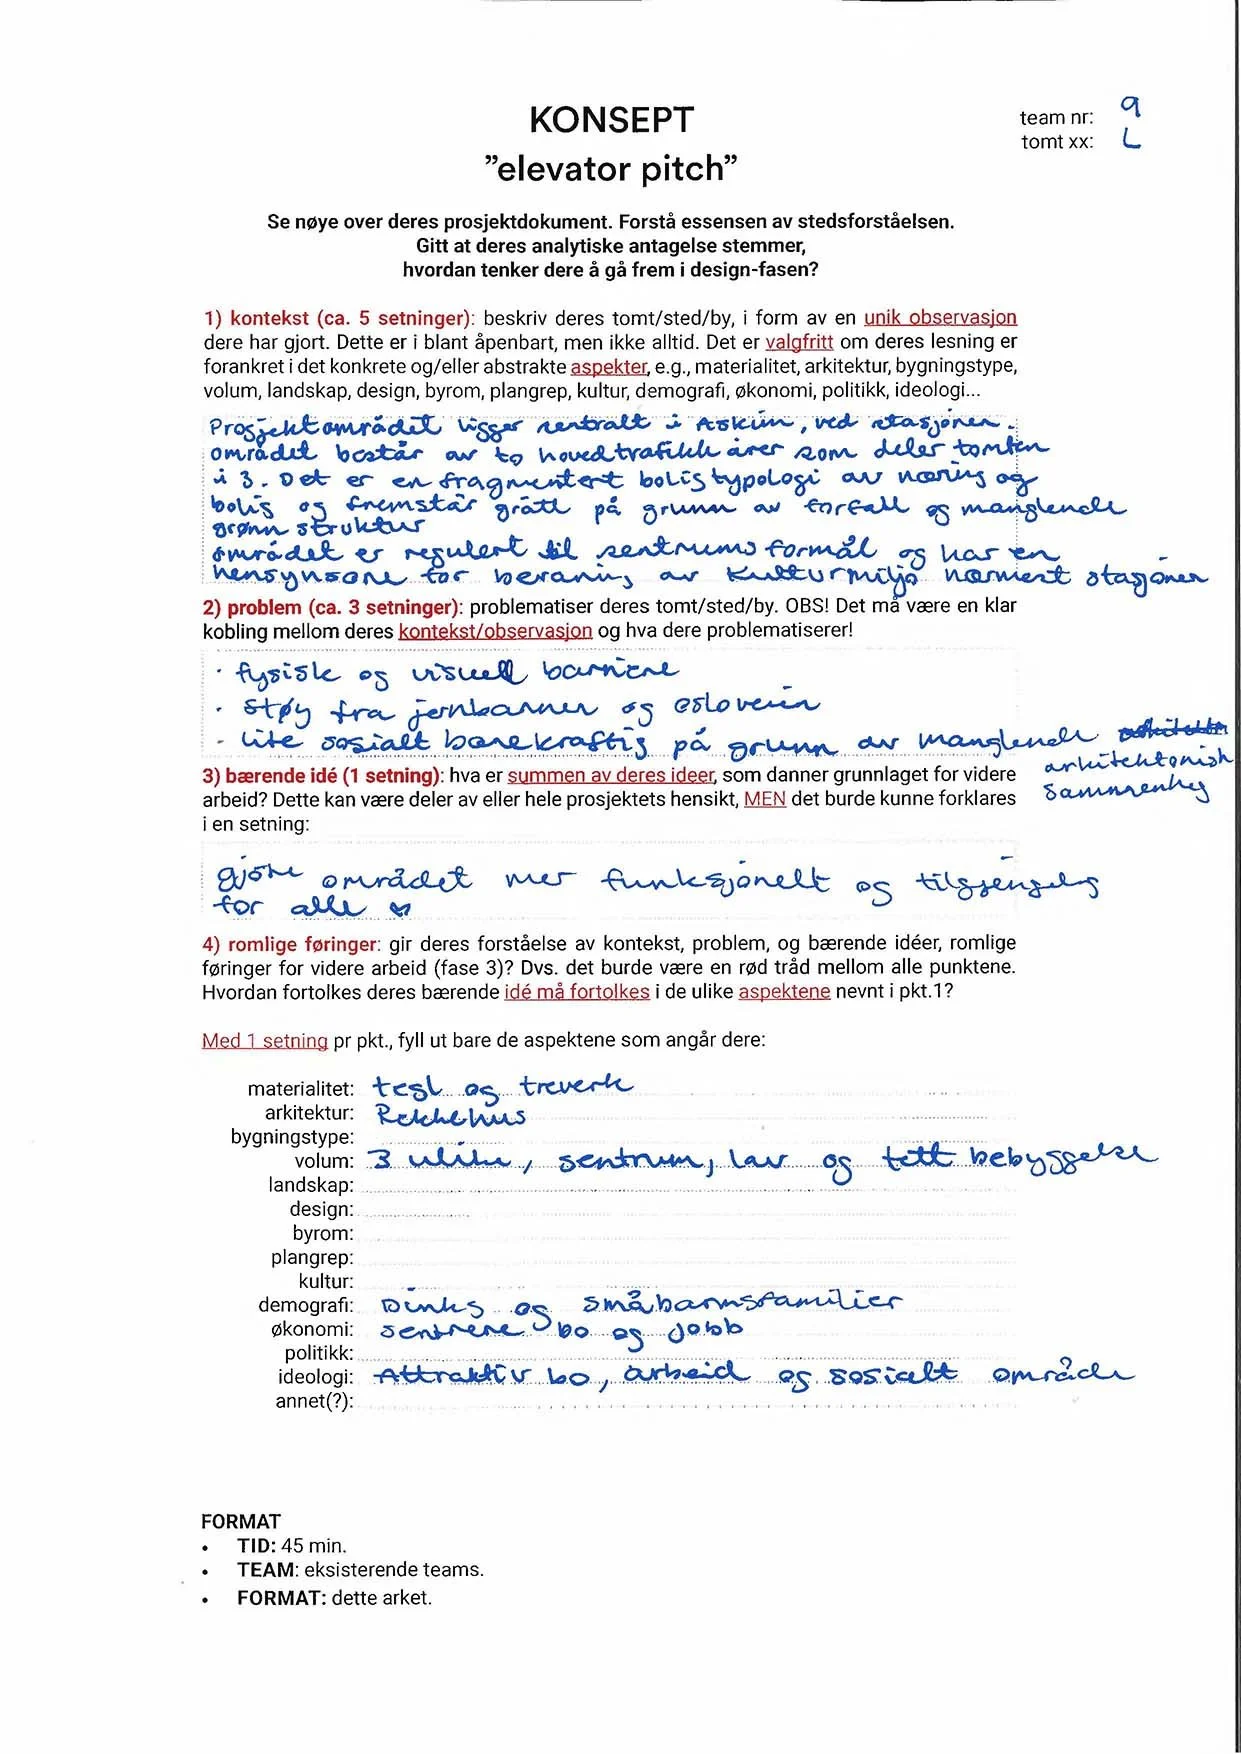 KONSEPT
"elevator pitch"
team nr: 9
tomt xx: L
Se nøye over deres prosjektdokument. Forstå essensen av stedsforståelsen.
Gitt at deres analytiske antagelse stemmer,
hvordan tenker dere å gå frem i design-fasen?
1) kontekst (ca. 5 setninger): beskriv deres tomt/sted/by, i form av en unik observasjon
dere har gjort. Dette er i blant åpenbart, men ikke alltid. Det er valgfritt om deres lesning er
forankret i det konkrete og/eller abstrakte aspekter, e.g., materialitet, arkitektur, bygningstype,
volum, landskap, design, byrom, plangrep, kultur, demografi, økonomi, politikk, ideologi...
Prosjektområdet ligger sentralt i Askim, ved stasjonen.
området består av to hovedtrafikk årer som deler tomten
i 3. Det er en fragmentert boligtypologi av næring og
bolig og fremstår grått på grunn av forfall og manglende
grønn struktur
området er regulert til sentrumsformål og har en
hensynsone for bevaring av kulturmiljø nærmest stasjonen
2) problem (ca. 3 setninger): problematiser deres tomt/sted/by. OBS! Det må være en klar
kobling mellom deres kontekst/observasjon og hva dere problematiserer!
· fysisk og visuell barriere
· støy fra jernbanen og osloveien
- lite sosialt bærekraftig på grunn av manglende
arkitektonisk
sammenheng
3) bærende idé (1 setning): hva er summen av deres ideer, som danner grunnlaget for videre
arbeid? Dette kan være deler av eller hele prosjektets hensikt, MEN det burde kunne forklares
i en setning:
gjøre området mer funksjonelt og tilgjengelig
for alle ♡
4) romlige føringer: gir deres forståelse av kontekst, problem, og bærende idéer, romlige
føringer for videre arbeid (fase 3)? Dvs. det burde være en rød tråd mellom alle punktene.
Hvordan fortolkes deres bærende idé må fortolkes i de ulike aspektene nevnt i pkt.1?
Med 1 setning pr pkt., fyll ut bare de aspektene som angår dere:
materialitet: tegl og treverk
arkitektur: Rekkehus
bygningstype:
volum: 3 ulike, sentrum, lav og tett bebyggelse
landskap:
design:
byrom:
plangrep:
kultur:
demografi: Dinks og småbarnsfamilier
økonomi: sentrene bo og jobb
politikk:
ideologi: Attraktiv bo, arbeid og sosialt område
annet(?):
FORMAT
• TID: 45 min.
• TEAM: eksisterende teams.
• FORMAT: dette arket.